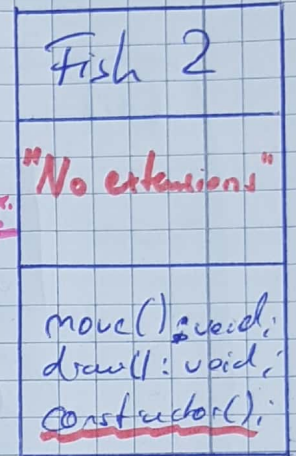 Fish 2
"No extensions"
move(): void;
draw(): void;
constructor();